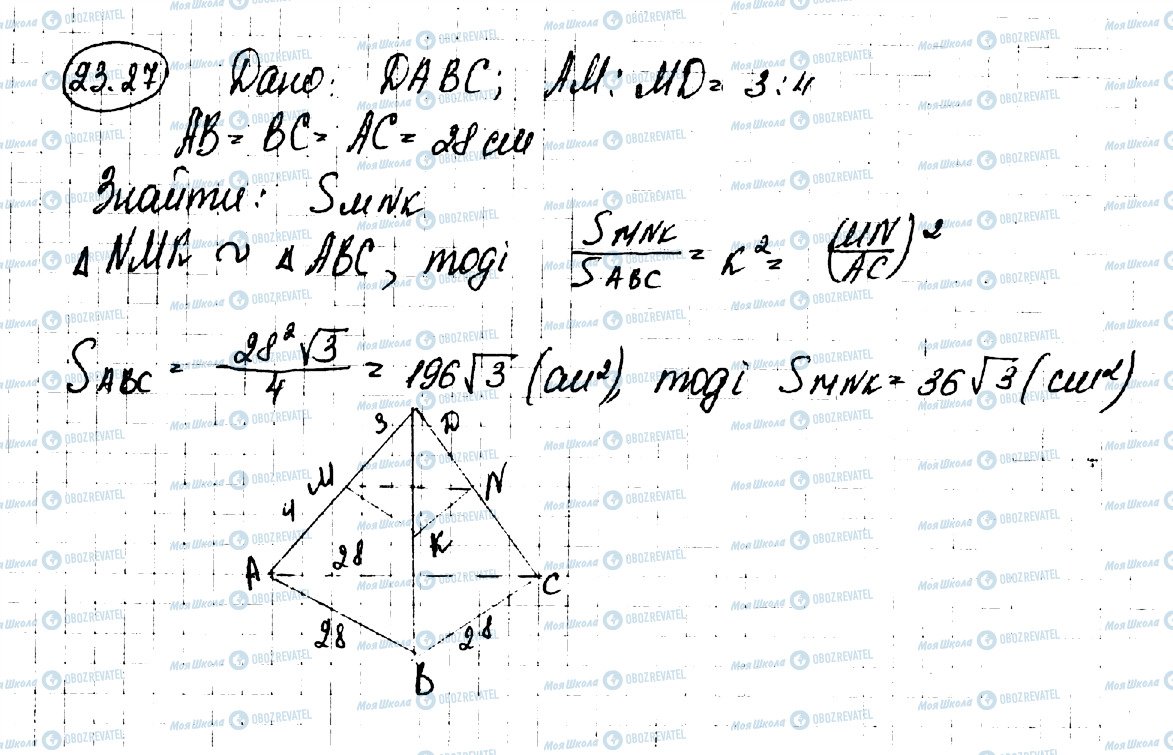 23.27 Дано: DABC; AM:MD = 3:4
AB = BC = AC = 28 см
Знайти: S MNK
Δ NMK ~ Δ ABC, тоді S MNK / S ABC = k² = (MN / AC)²
S ABC = 28²√3 / 4 = 196√3 (см²), тоді S MNK = 36√3 (см²)
3 D
M N
4
K
A 28 C
28 28
B
Моя Школа OBOZREVATEL